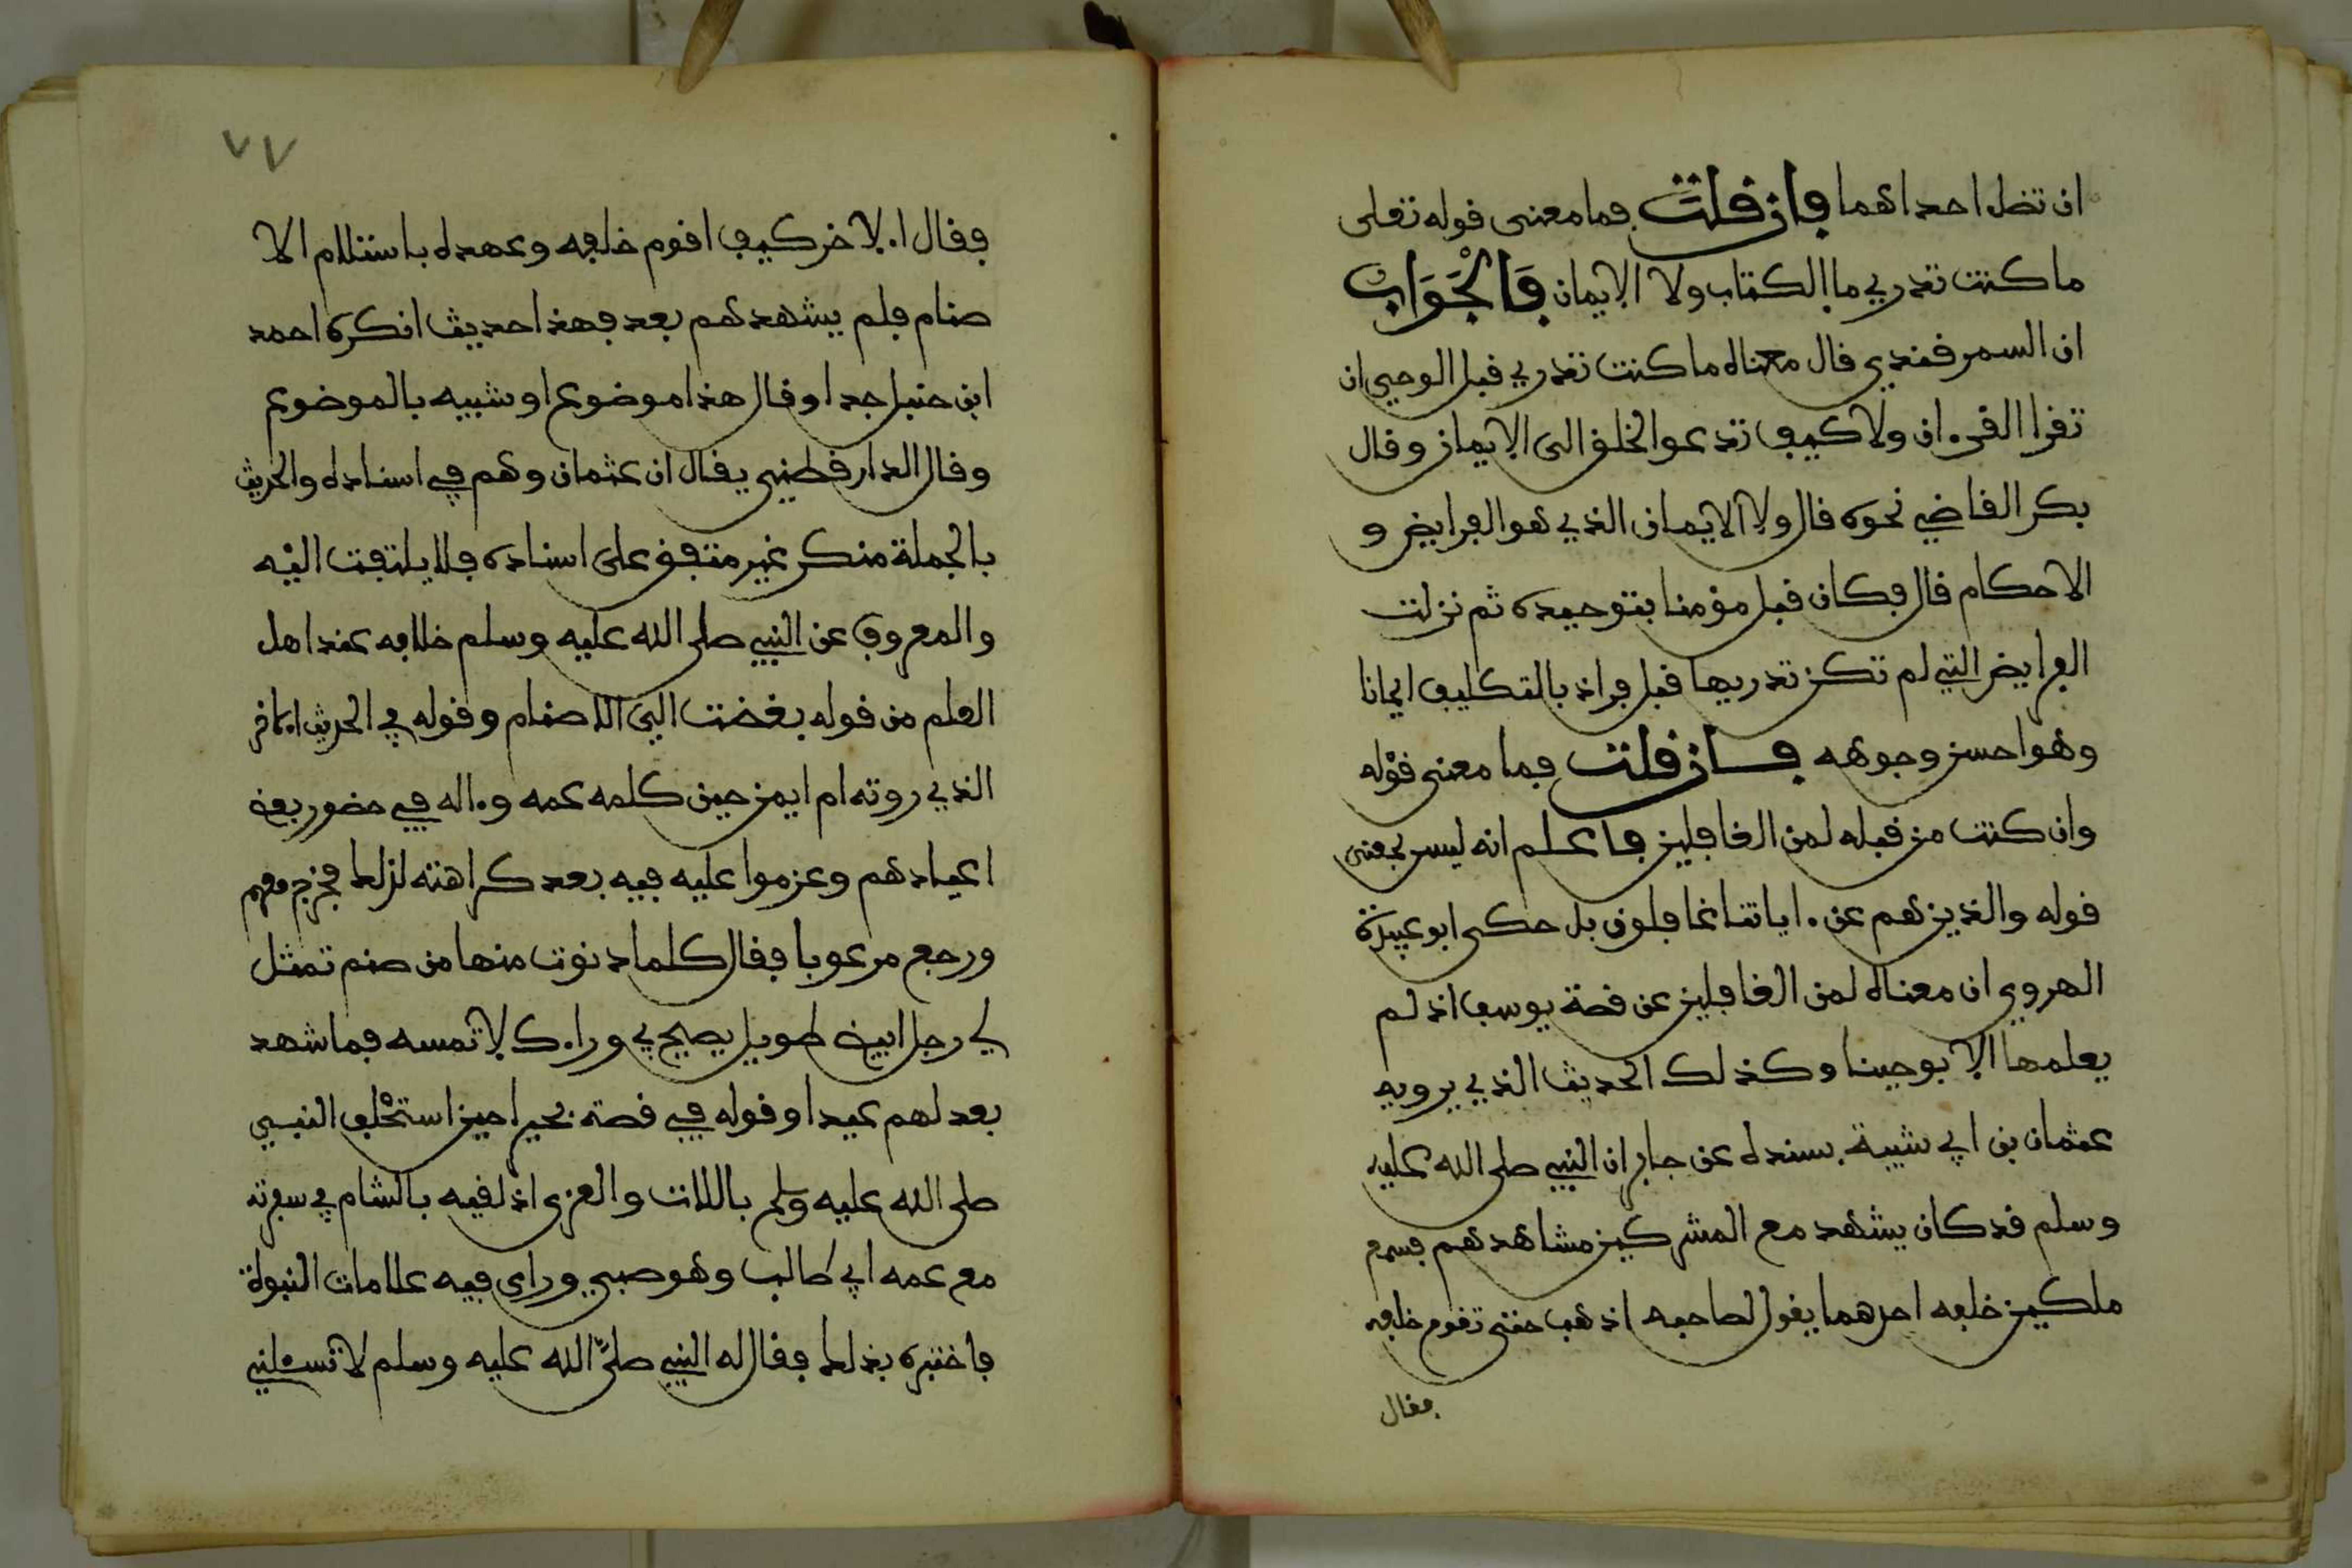 ان تضل احداهما فان قلت فما معنى قوله تعلى
ما كنت تدري ما الكتاب ولا الايمان فَالْجَوَابُ
ان السمرقندي قال معناه ما كنت تدري قبل الوحي ان
تقرا القرءان ولا كيف تدعوا الخلق الى الايمان وقال
بكر القاضي نحوه قال ولا الايمان الذي هو الفرايض و
الاحكام قال فكان قبل مؤمنا بتوحيده ثم نزلت
الفرايض التي لم تكن تدريها قبل فزاد بالتكليف ايمانا
وهو احسن وجوهه فان قلت فما معنى قوله
وان كنت من قبله لمن الغافلين فاعلم انه ليس بمعنى
قوله والذين هم عن ءاياتنا غافلون بل حكى ابو عبيدة
الهروي ان معناه لمن الغافلين عن قصة يوسف اذ لم
يعلمها الا بوحينا وكذلك الحديث الذي يرويه
عثمان بن ابي شيبة بسنده عن جابر ان النبي صلى الله عليه
وسلم قد كان يشهد مع المشركين مشاهدهم فسمع
ملكين خلفه احدهما يقول لصاحبه اذهب حتى تقوم خلفه
فقال
٧٧
فقال الاخر كيف اقوم خلفه وعهده باستلام الا
صنام فلم يشهدهم بعد فهذا حديث انكره احمد
ابن حنبل جدا وقال هذا موضوع او شبيه بالموضوع
وقال الدارقطني يقال ان عثمان وهم في اسناده والحديث
بالجملة منكر غير متفق على اسناده فلا يلتفت اليه
والمعروف عن النبي صلى الله عليه وسلم خلافه عند اهل
العلم من قوله بغضت الي الاصنام وقوله في الحديث الاخر
الذي روته ام ايمن حين كلمه عمه وءاله في حضور بعض
اعيادهم وعزموا عليه فيه بعد كراهته لذلك فخرج معهم
ورجع مرعوبا فقال كلما دنوت منها من صنم تمثل
لي رجل ابيض طويل يصيح بي وراءك لا تمسه فما شهد
بعد لهم عيدا وقوله في قصة بحيرا حين استحْلف النبي
صلى الله عليه وسلم باللات والعزى اذ لقيه بالشام في سفرته
مع عمه ابي طالب وهو صبي وراى فيه علامات النبوة
فاختبره بذلك فقال له النبي صلىَّ الله عليه وسلم لا تسئلني